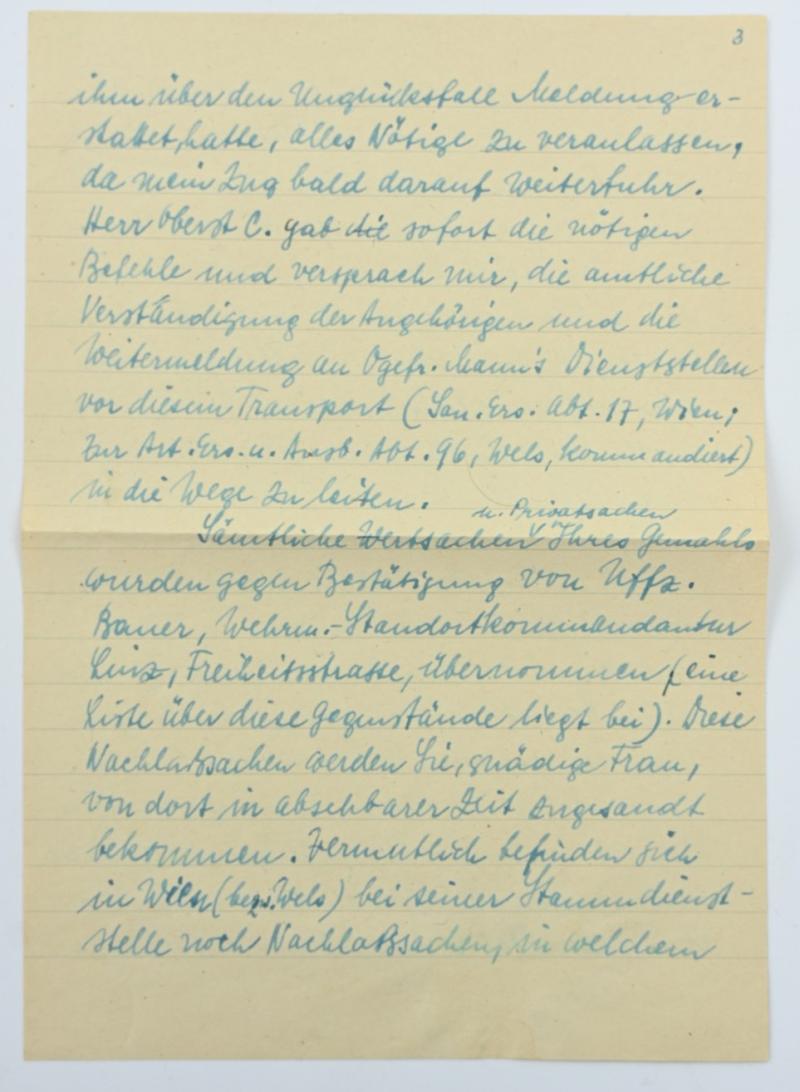 3
ihm über den Unglücksfall Meldung er-
stattet hatte, alles Nötige zu veranlassen,
da mein Zug bald darauf weiterfuhr.
Herr Oberst C. gab die sofort die nötigen
Befehle und versprach mir, die amtliche
Verständigung der Angehörigen und die
Weitermeldung an Ogefr. Mann's Dienststellen
vor diesem Transport (San. Ers. Abt. 17, Wien;
zur Art. Ers. u. Ausb. Abt. 96, Wels, kommandiert)
in die Wege zu leiten.
u. Privatsachen
Sämtliche Wertsachen Ihres Gemahls
wurden gegen Bestätigung von Uffz.
Bauer, Wehrm.-Standortkommandantur
Linz, Freiheitsstrasse, übernommen (eine
Liste über diese Gegenstände liegt bei). Diese
Nachlaßsachen werden Sie, gnädige Frau,
von dort in absehbarer Zeit zugesandt
bekommen. Vermutlich befinden sich
in Wien (bezw. Wels) bei seiner Stammdienst-
stelle noch Nachlaßsachen, in welchem